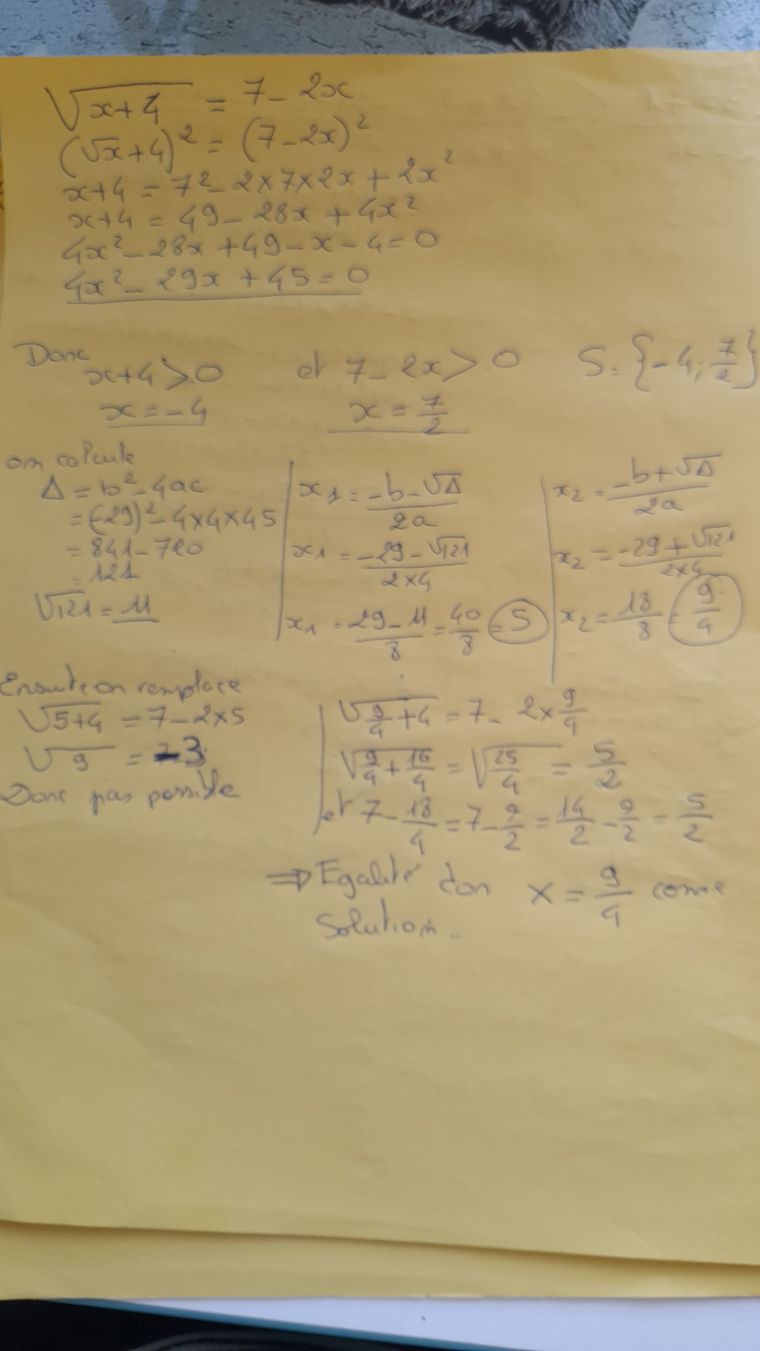 √x+4 = 7 - 2x
(√x+4)² = (7-2x)²
x+4 = 7² - 2×7×2x + 2x²
x+4 = 49 - 28x + 4x²
4x² - 28x + 49 - x - 4 = 0
4x² - 29x + 45 = 0
Donc x+4 > 0 et 7 - 2x > 0 S = {-4; 7/2}
x = -4 x = 7/2
on calcule
Δ = b² - 4ac
= (-29)² - 4×4×45
= 841 - 720
= 121
√121 = 11
x1 = -b-√Δ/2a
x1 = -29-√121/2×4
x1 = 29-11/8 = 40/8 = 5
x2 = -b+√Δ/2a
x2 = -29+√121/2×4
x2 = 18/8 = 9/4
Ensuite on remplace
√5+4 = 7-2×5
√9 = -3
Donc pas possible
√9/4+4 = 7 - 2×9/4
√9/4+16/4 = √25/4 = 5/2
et 7 - 18/4 = 7 - 9/2 = 14/2 - 9/2 = 5/2
⇒ Egalité don x = 9/4 comme
solution..